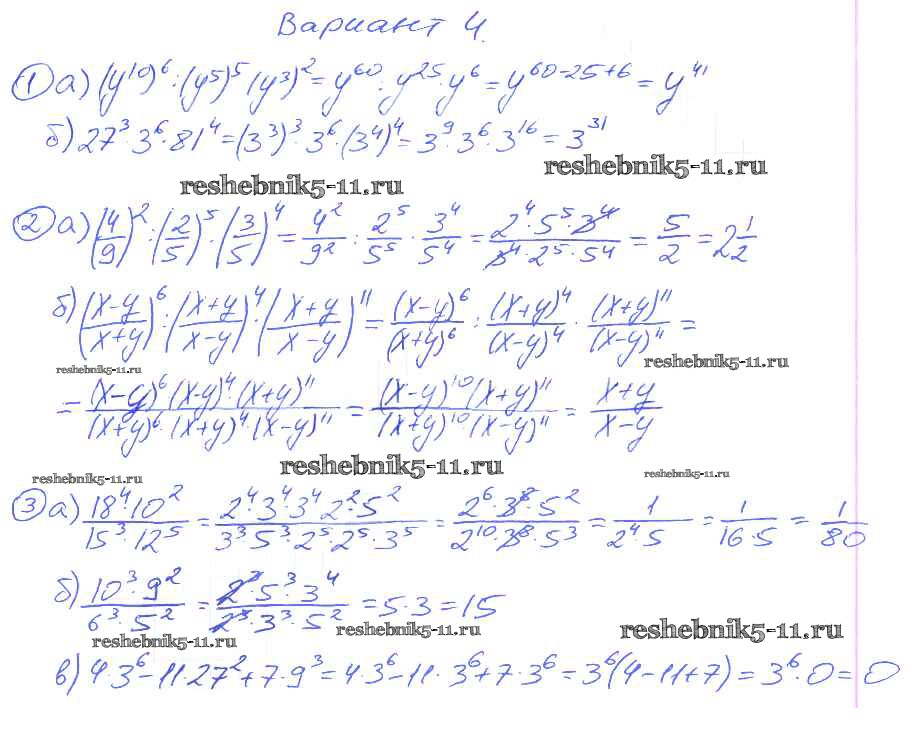 Вариант 4.
① а) (y¹⁰)⁶ : (y⁵)⁵ (y³)² = y⁶⁰ : y²⁵ · y⁶ = y⁶⁰⁻²⁵⁺⁶ = y⁴¹
б) 27³ · 3⁶ · 81⁴ = (3³)³ · 3⁶ · (3⁴)⁴ = 3⁹ · 3⁶ · 3¹⁶ = 3³¹
reshebnik5-11.ru
reshebnik5-11.ru
② а) (4/9)² : (2/5)⁵ · (3/5)⁴ = 4²/9² : 2⁵/5⁵ · 3⁴/5⁴ = (2⁴ · 5⁵ · 3⁴)/(3⁴ · 2⁵ · 5⁴) = 5/2 = 2 1/2
б) ((x-y)/(x+y))⁶ : ((x+y)/(x-y))⁴ · ((x+y)/(x-y))¹¹ = (x-y)⁶/(x+y)⁶ : (x+y)⁴/(x-y)⁴ · (x+y)¹¹/(x-y)¹¹ =
reshebnik5-11.ru
reshebnik5-11.ru
= ((x-y)⁶ (x-y)⁴ · (x+y)¹¹)/((x+y)⁶ · (x+y)⁴ · (x-y)¹¹) = ((x-y)¹⁰ (x+y)¹¹)/((x+y)¹⁰ (x-y)¹¹) = (x+y)/(x-y)
reshebnik5-11.ru
reshebnik5-11.ru
reshebnik5-11.ru
③ а) (18⁴ · 10²)/(15³ · 12⁵) = (2⁴ · 3⁴ · 3⁴ 2² · 5²)/(3³ · 5³ · 2⁵ · 2⁵ · 3⁵) = (2⁶ · 3⁸ · 5²)/(2¹⁰ · 3⁸ · 5³) = 1/(2⁴ · 5) = 1/(16 · 5) = 1/80
б) (10³ · 9²)/(6³ · 5²) = (2³ · 5³ · 3⁴)/(2³ · 3³ · 5²) = 5 · 3 = 15
reshebnik5-11.ru
reshebnik5-11.ru
reshebnik5-11.ru
в) 4 · 3⁶ - 11 · 27² + 7 · 9³ = 4 · 3⁶ - 11 · 3⁶ + 7 · 3⁶ = 3⁶ (4 - 11 + 7) = 3⁶ · 0 = 0